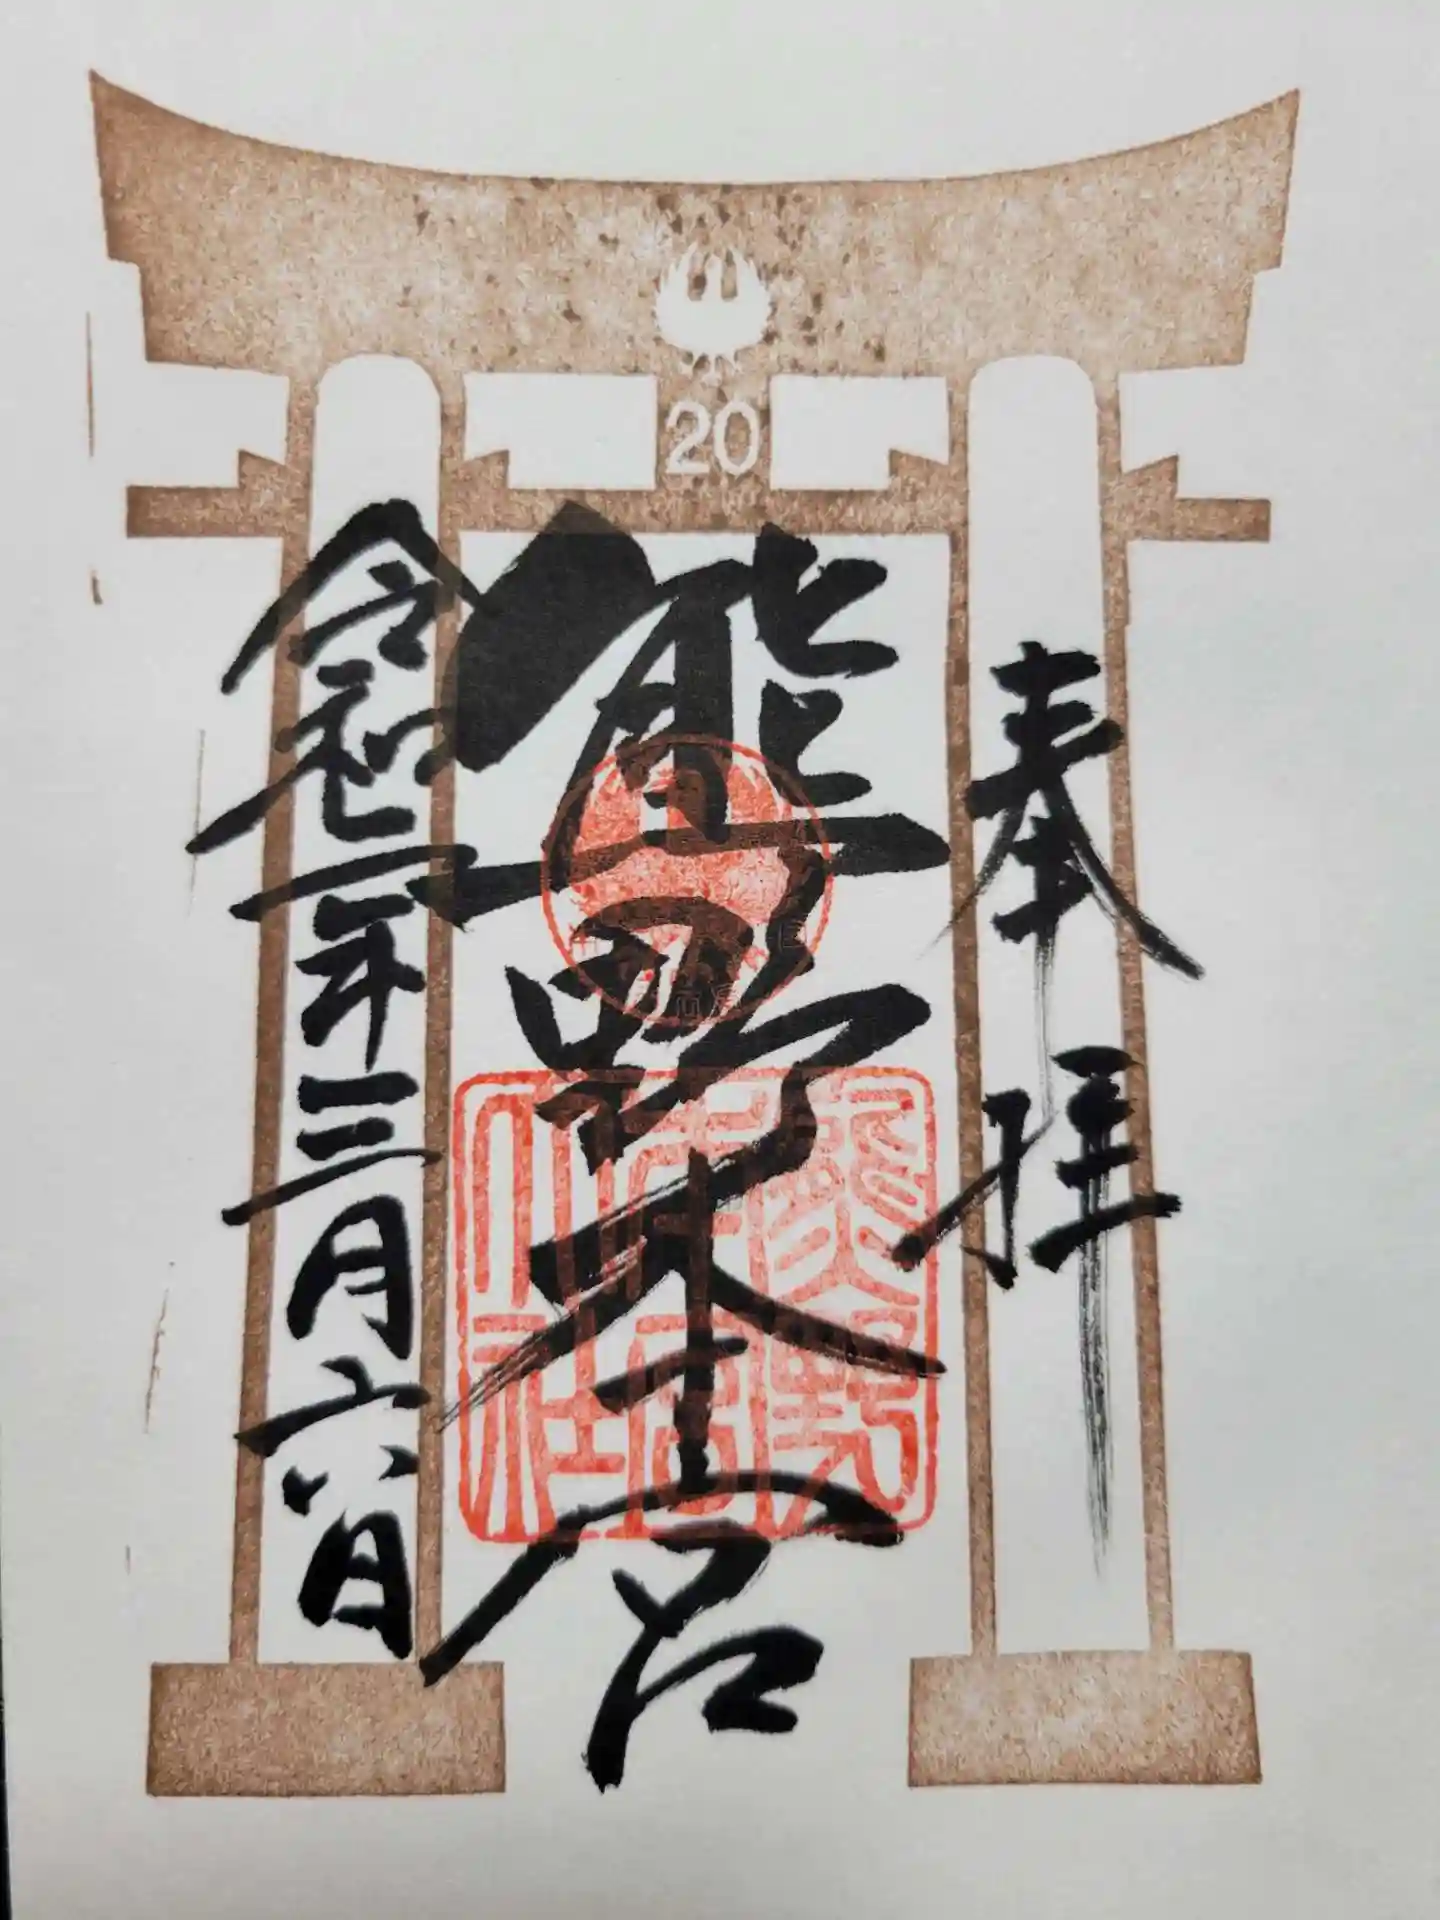 20
奉拝
熊野本宮
令和二年三月六日
熊野
本宮
大社